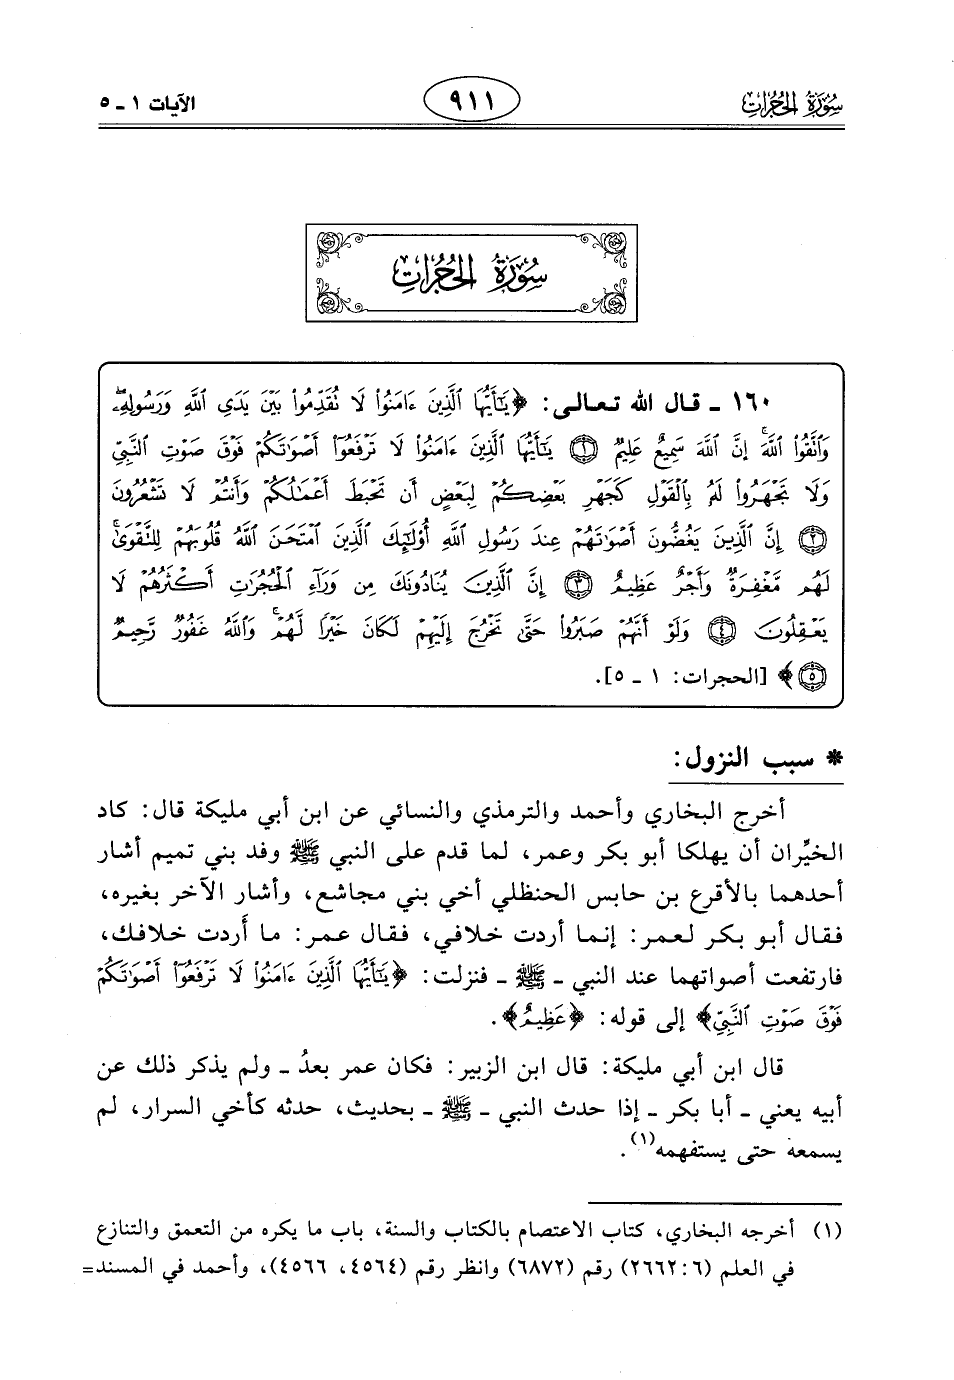 سُورَةُ الحُجُرَاتِ
٩١١
الآيات ١ ـ ٥
سُورَةُ الحُجُرَاتِ
١٦٠ ـ قال الله تعالى: ﴿يَٰٓأَيُّهَا ٱلَّذِينَ ءَامَنُوا۟ لَا تُقَدِّمُوا۟ بَيْنَ يَدَىِ ٱللَّهِ وَرَسُولِهِۦۖ
وَٱتَّقُوا۟ ٱللَّهَۚ إِنَّ ٱللَّهَ سَمِيعٌ عَلِيمٌ ۝١ يَٰٓأَيُّهَا ٱلَّذِينَ ءَامَنُوا۟ لَا تَرْفَعُوٓا۟ أَصْوَٰتَكُمْ فَوْقَ صَوْتِ ٱلنَّبِىِّ
وَلَا تَجْهَرُوا۟ لَهُۥ بِٱلْقَوْلِ كَجَهْرِ بَعْضِكُمْ لِبَعْضٍ أَن تَحْبَطَ أَعْمَٰلُكُمْ وَأَنتُمْ لَا تَشْعُرُونَ
۝٢ إِنَّ ٱلَّذِينَ يَغُضُّونَ أَصْوَٰتَهُمْ عِندَ رَسُولِ ٱللَّهِ أُو۟لَٰٓئِكَ ٱلَّذِينَ ٱمْتَحَنَ ٱللَّهُ قُلُوبَهُمْ لِلتَّقْوَىٰۚ
لَهُم مَّغْفِرَةٌ وَأَجْرٌ عَظِيمٌ ۝٣ إِنَّ ٱلَّذِينَ يُنَادُونَكَ مِن وَرَآءِ ٱلْحُجُرَٰتِ أَكْثَرُهُمْ لَا
يَعْقِلُونَ ۝٤ وَلَوْ أَنَّهُمْ صَبَرُوا۟ حَتَّىٰ تَخْرُجَ إِلَيْهِمْ لَكَانَ خَيْرًا لَّهُمْۚ وَٱللَّهُ غَفُورٌ رَّحِيمٌ
۝٥﴾ [الحجرات: ١ ـ ٥].
* سبب النزول:
أخرج البخاري وأحمد والترمذي والنسائي عن ابن أبي مليكة قال: كاد
الخيِّران أن يهلكا أبو بكر وعمر، لما قدم على النبي ﷺ وفد بني تميم أشار
أحدهما بالأقرع بن حابس الحنظلي أخي بني مجاشع، وأشار الآخر بغيره،
فقال أبو بكر لعمر: إنما أردت خلافي، فقال عمر: ما أَردت خلافك،
فارتفعت أصواتهما عند النبي ـ ﷺ ـ فنزلت: ﴿يَٰٓأَيُّهَا ٱلَّذِينَ ءَامَنُوا۟ لَا تَرْفَعُوٓا۟ أَصْوَٰتَكُمْ
فَوْقَ صَوْتِ ٱلنَّبِىِّ﴾ إلى قوله: ﴿عَظِيمٌ﴾.
قال ابن أبي مليكة: قال ابن الزبير: فكان عمر بعدُ ـ ولم يذكر ذلك عن
أبيه يعني ـ أبا بكر ـ إذا حدث النبي ـ ﷺ ـ بحديث، حدثه كأخي السرار، لم
يسمعه حتى يستفهمه(١).
(١) أخرجه البخاري، كتاب الاعتصام بالكتاب والسنة، باب ما يكره من التعمق والتنازع
في العلم (٦: ٢٦٦٢) رقم (٦٨٧٢) وانظر رقم (٤٥٦٤، ٤٥٦٦)، وأحمد في المسند=